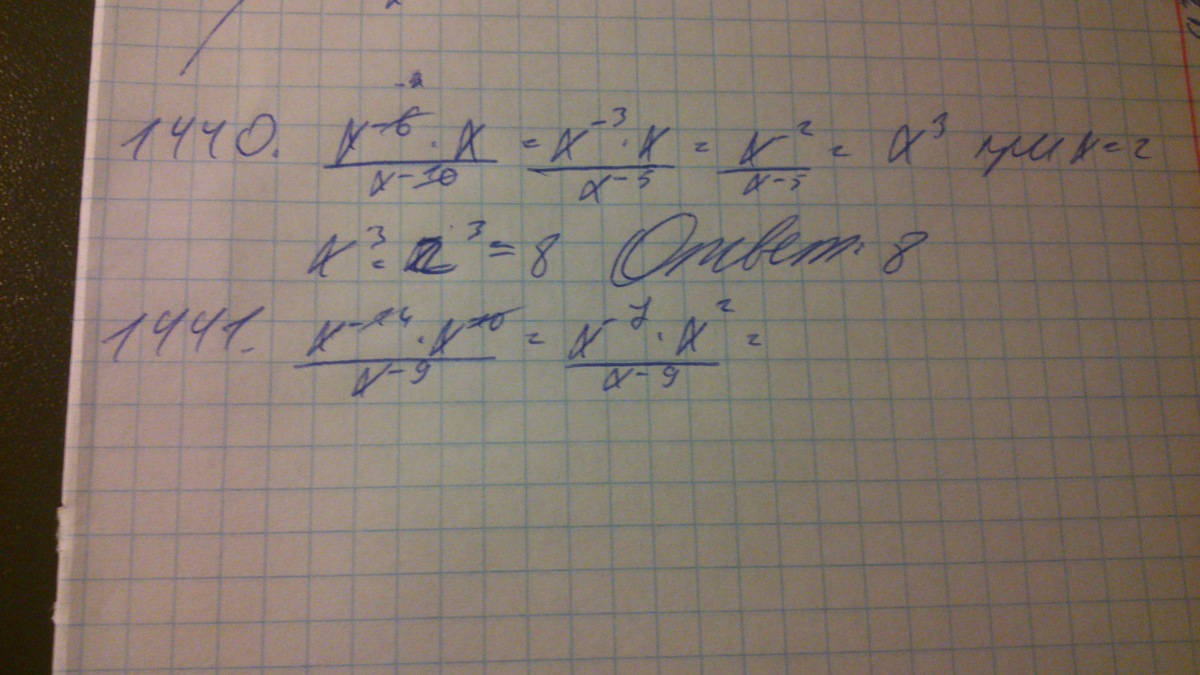 1440. x⁻⁶ · x / x⁻¹⁰ = x⁻³ · x / x⁻⁵ = x⁻² / x⁻⁵ = x³ при x = 2
x³ = 2³ = 8 Ответ: 8
1441. x⁻¹⁴ · x¹⁰ / x⁻⁹ = x⁻⁷ · x² / x⁻⁹ =